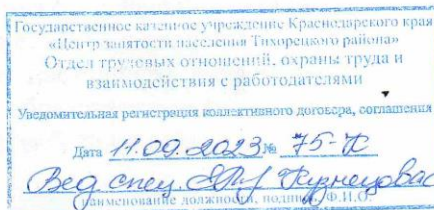 Государственное казенное учреждение Краснодарского края
«Центр занятости населения Тихорецкого района»
Отдел трудовых отношений, охраны труда и
взаимодействия с работодателями
Уведомительная регистрация коллективного договора, соглашения
Дата 11.09.2023 № 75-К
Вед. спец. Кузнецова
наименование должности, подпись, Ф.И.О.